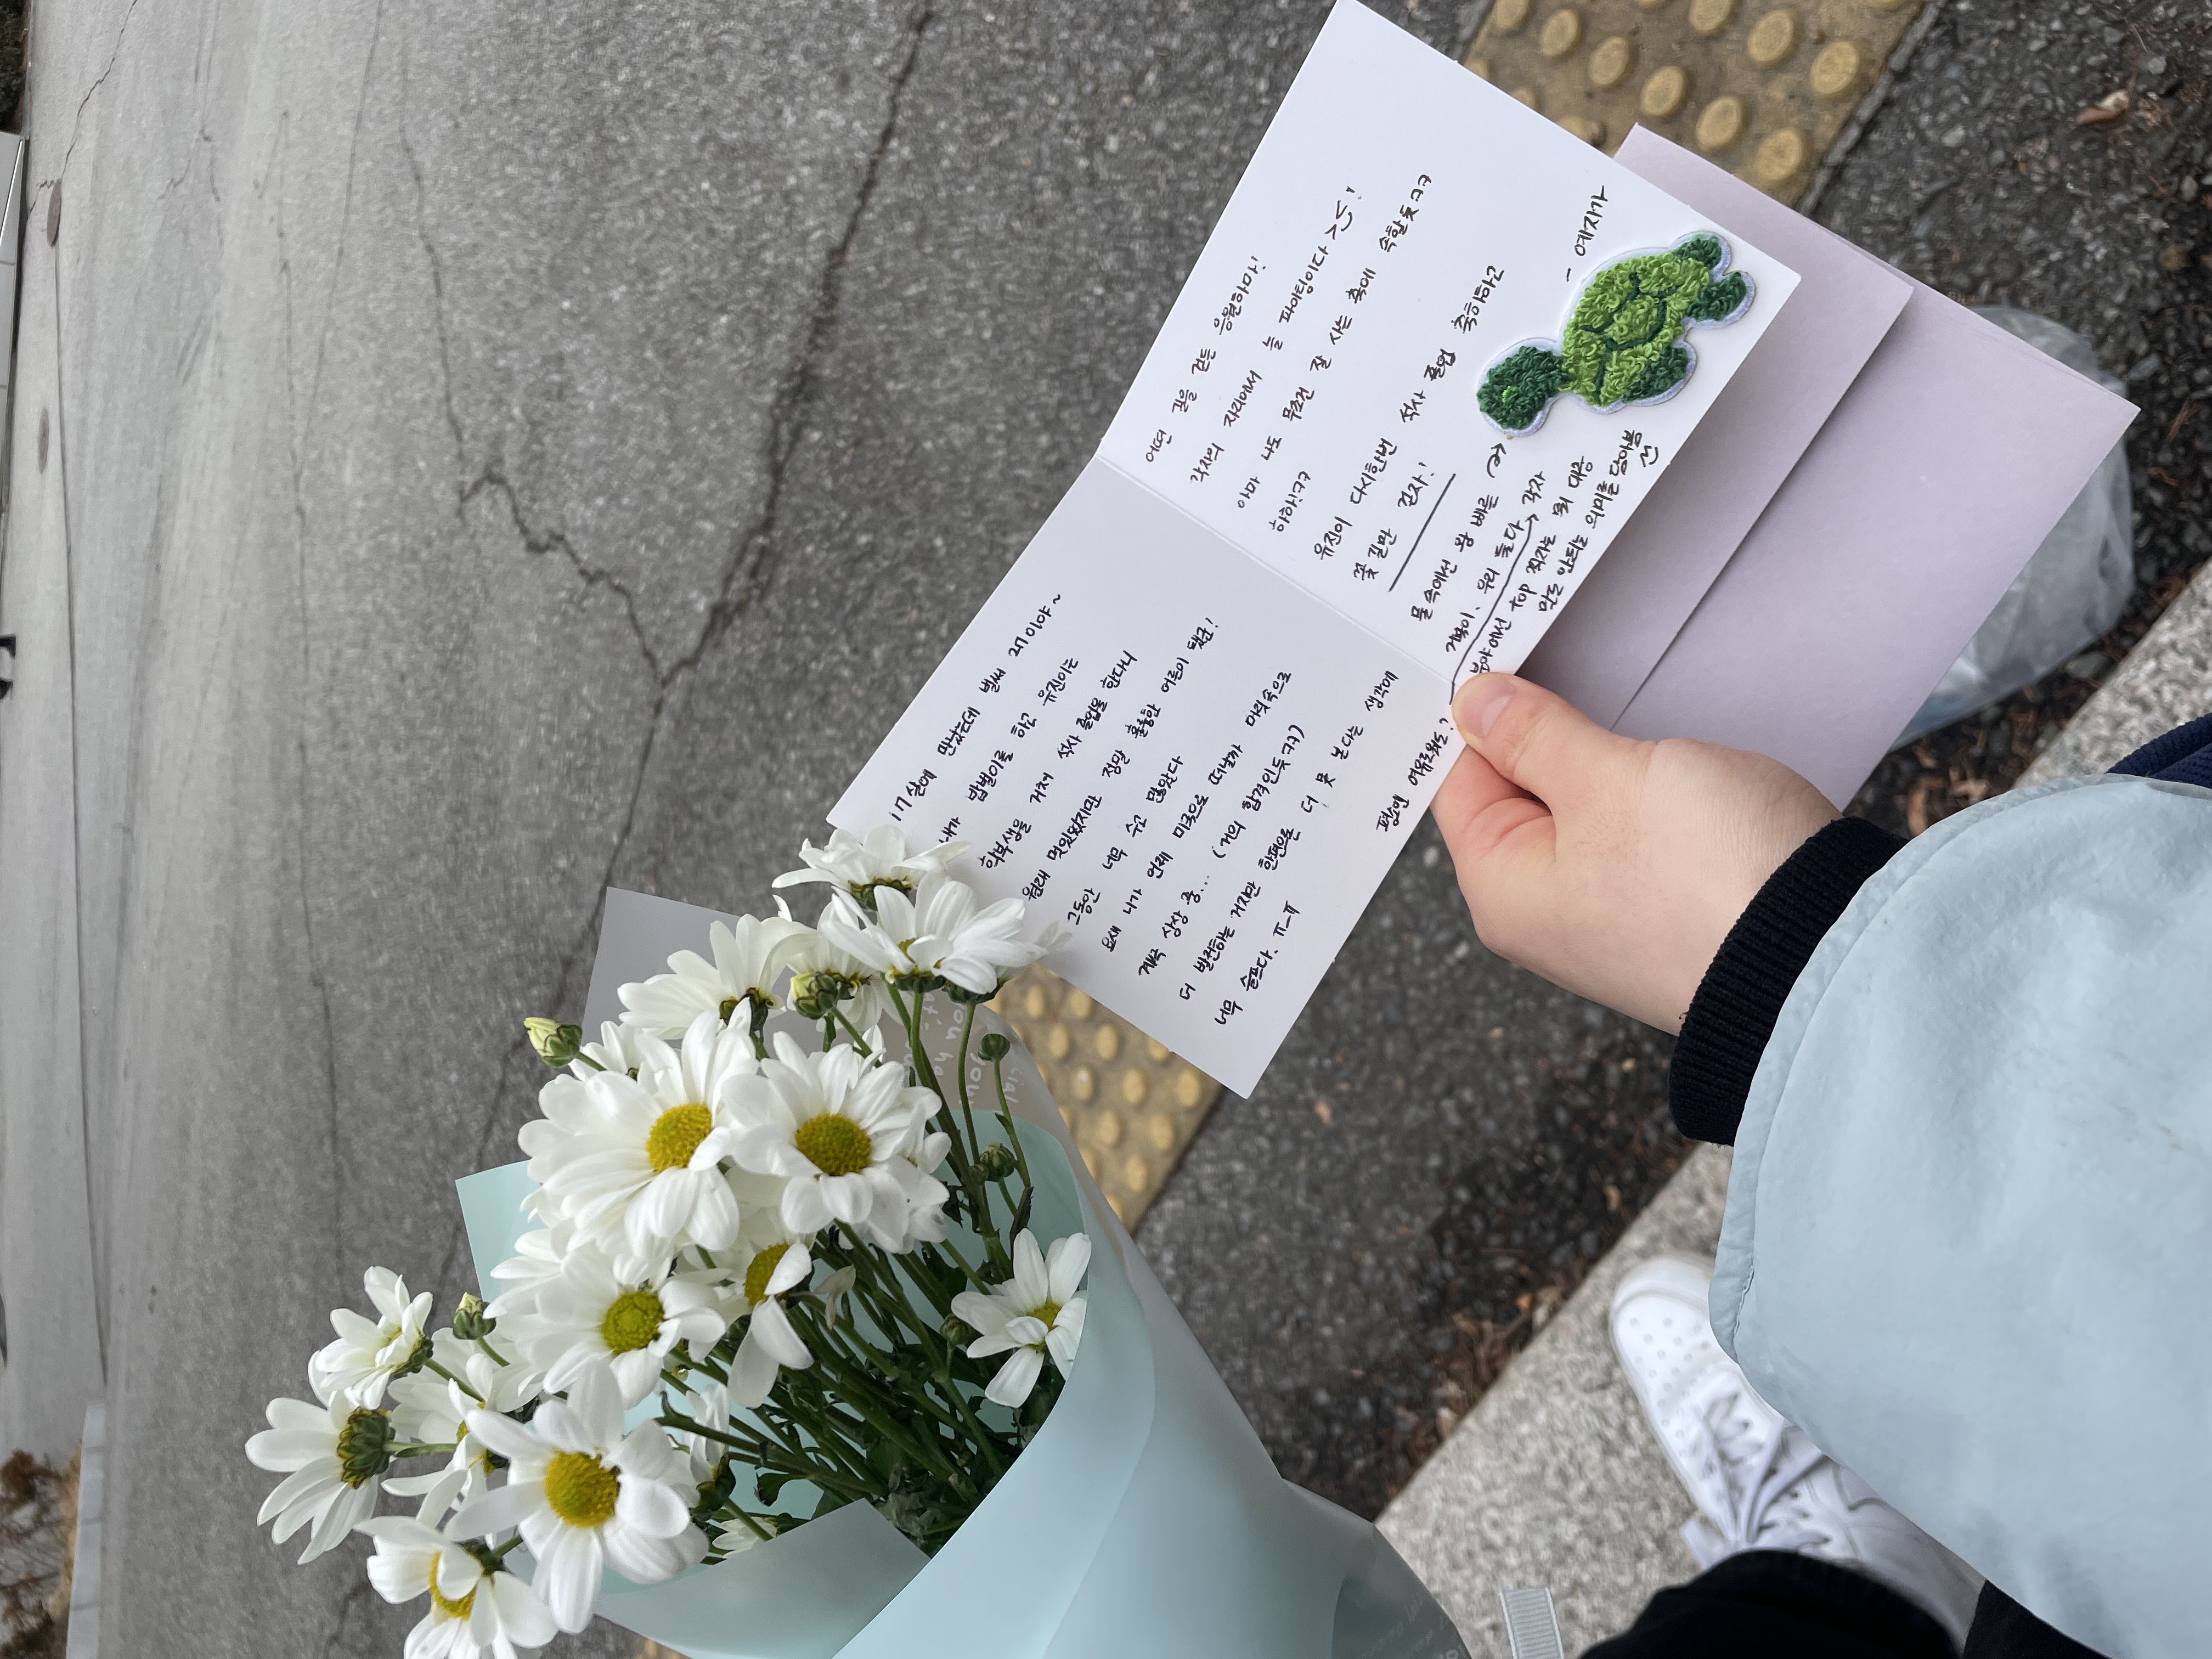 17살에 만났는데 벌써 27이야~
내가 밥벌이를 하고 유진이는
학부생을 거쳐 석사 졸업을 한다니
원래 멋있었지만 정말 훌륭한 어른이 됐군!
그동안 너무 수고 많았다
요새 니가 언제 미국으로 떠날까 마윽속으로
계속 상상 중... (거의 합격인듯ㅋㅋ)
더 발전하는 거지만 한편으론 더 못 본다는 생각에
너무 슬프다. ㅠ_ㅠ
어떤 길을 걷든 응원하마!
각자의 자리에서 늘 파이팅이다 >_<!
아마 나도 무조건 잘 사는 축에 속할듯ㅋㅋ
하하!ㅋㅋ
유진이 다시한번 석사 졸업 축하하고
꽃길만 걷자!
평소엔 여유로워도?
물 속에선 왕 빠른
거북이. 우리 둘다 각자
분야에선 top 찍자는 뭐 대충
말도 안되는 의미를 담아봄
- 예지가